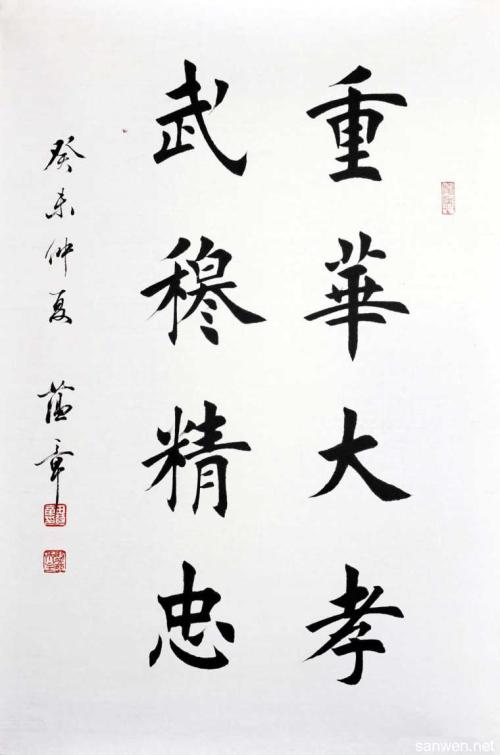 重華大孝
武穆精忠
癸未仲夏
蘊章
sanwen.net